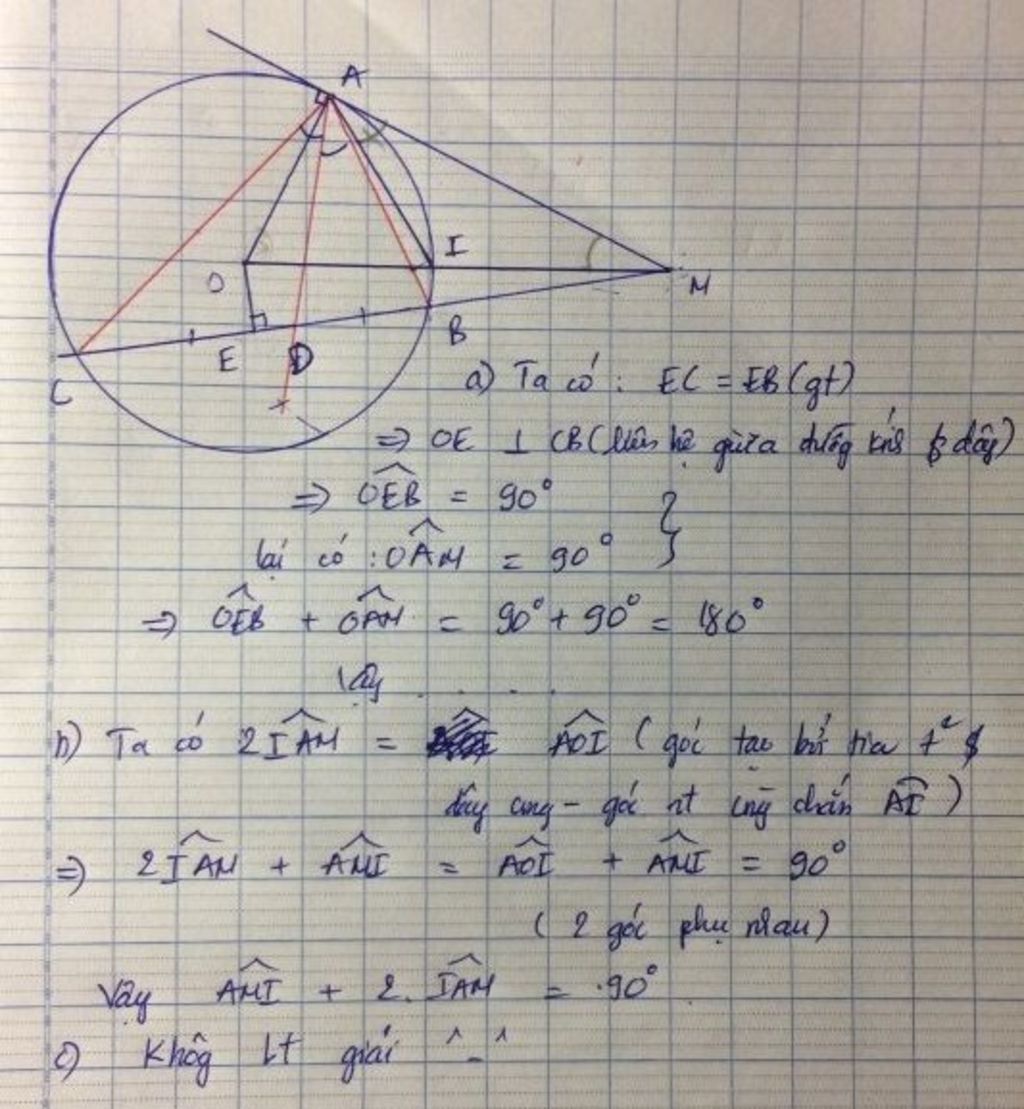 A
I
O
M
B
E
D
C
a) Ta có : EC = EB (gt)
=> OE ⊥ CB (liên hệ giữa đường kính & dây)
=> OEB̂ = 90°
lại có : OÂM = 90° }
=> OÊB + OÂM = 90° + 90° = 180°
Vậy . . . .
b) Ta có 2IÂM = AÔI ( góc tạo bởi tia t² &
dây cung - góc nt cùng chắn AI )
=> 2IÂM + AM̂I = AÔI + AM̂I = 90°
( 2 góc phụ nhau )
Vậy AM̂I + 2. IÂM = 90°
c) Khôg bt giải ^_^